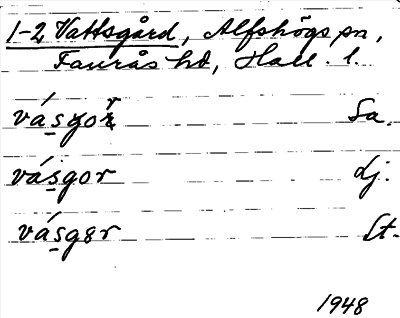 1-2 Vattsgård, Alfshögs sn,
Faurås hd, Hall. l.
vá̱sgor̆ Sa.
vás̱gor dj.
vás̱gər St.
1948